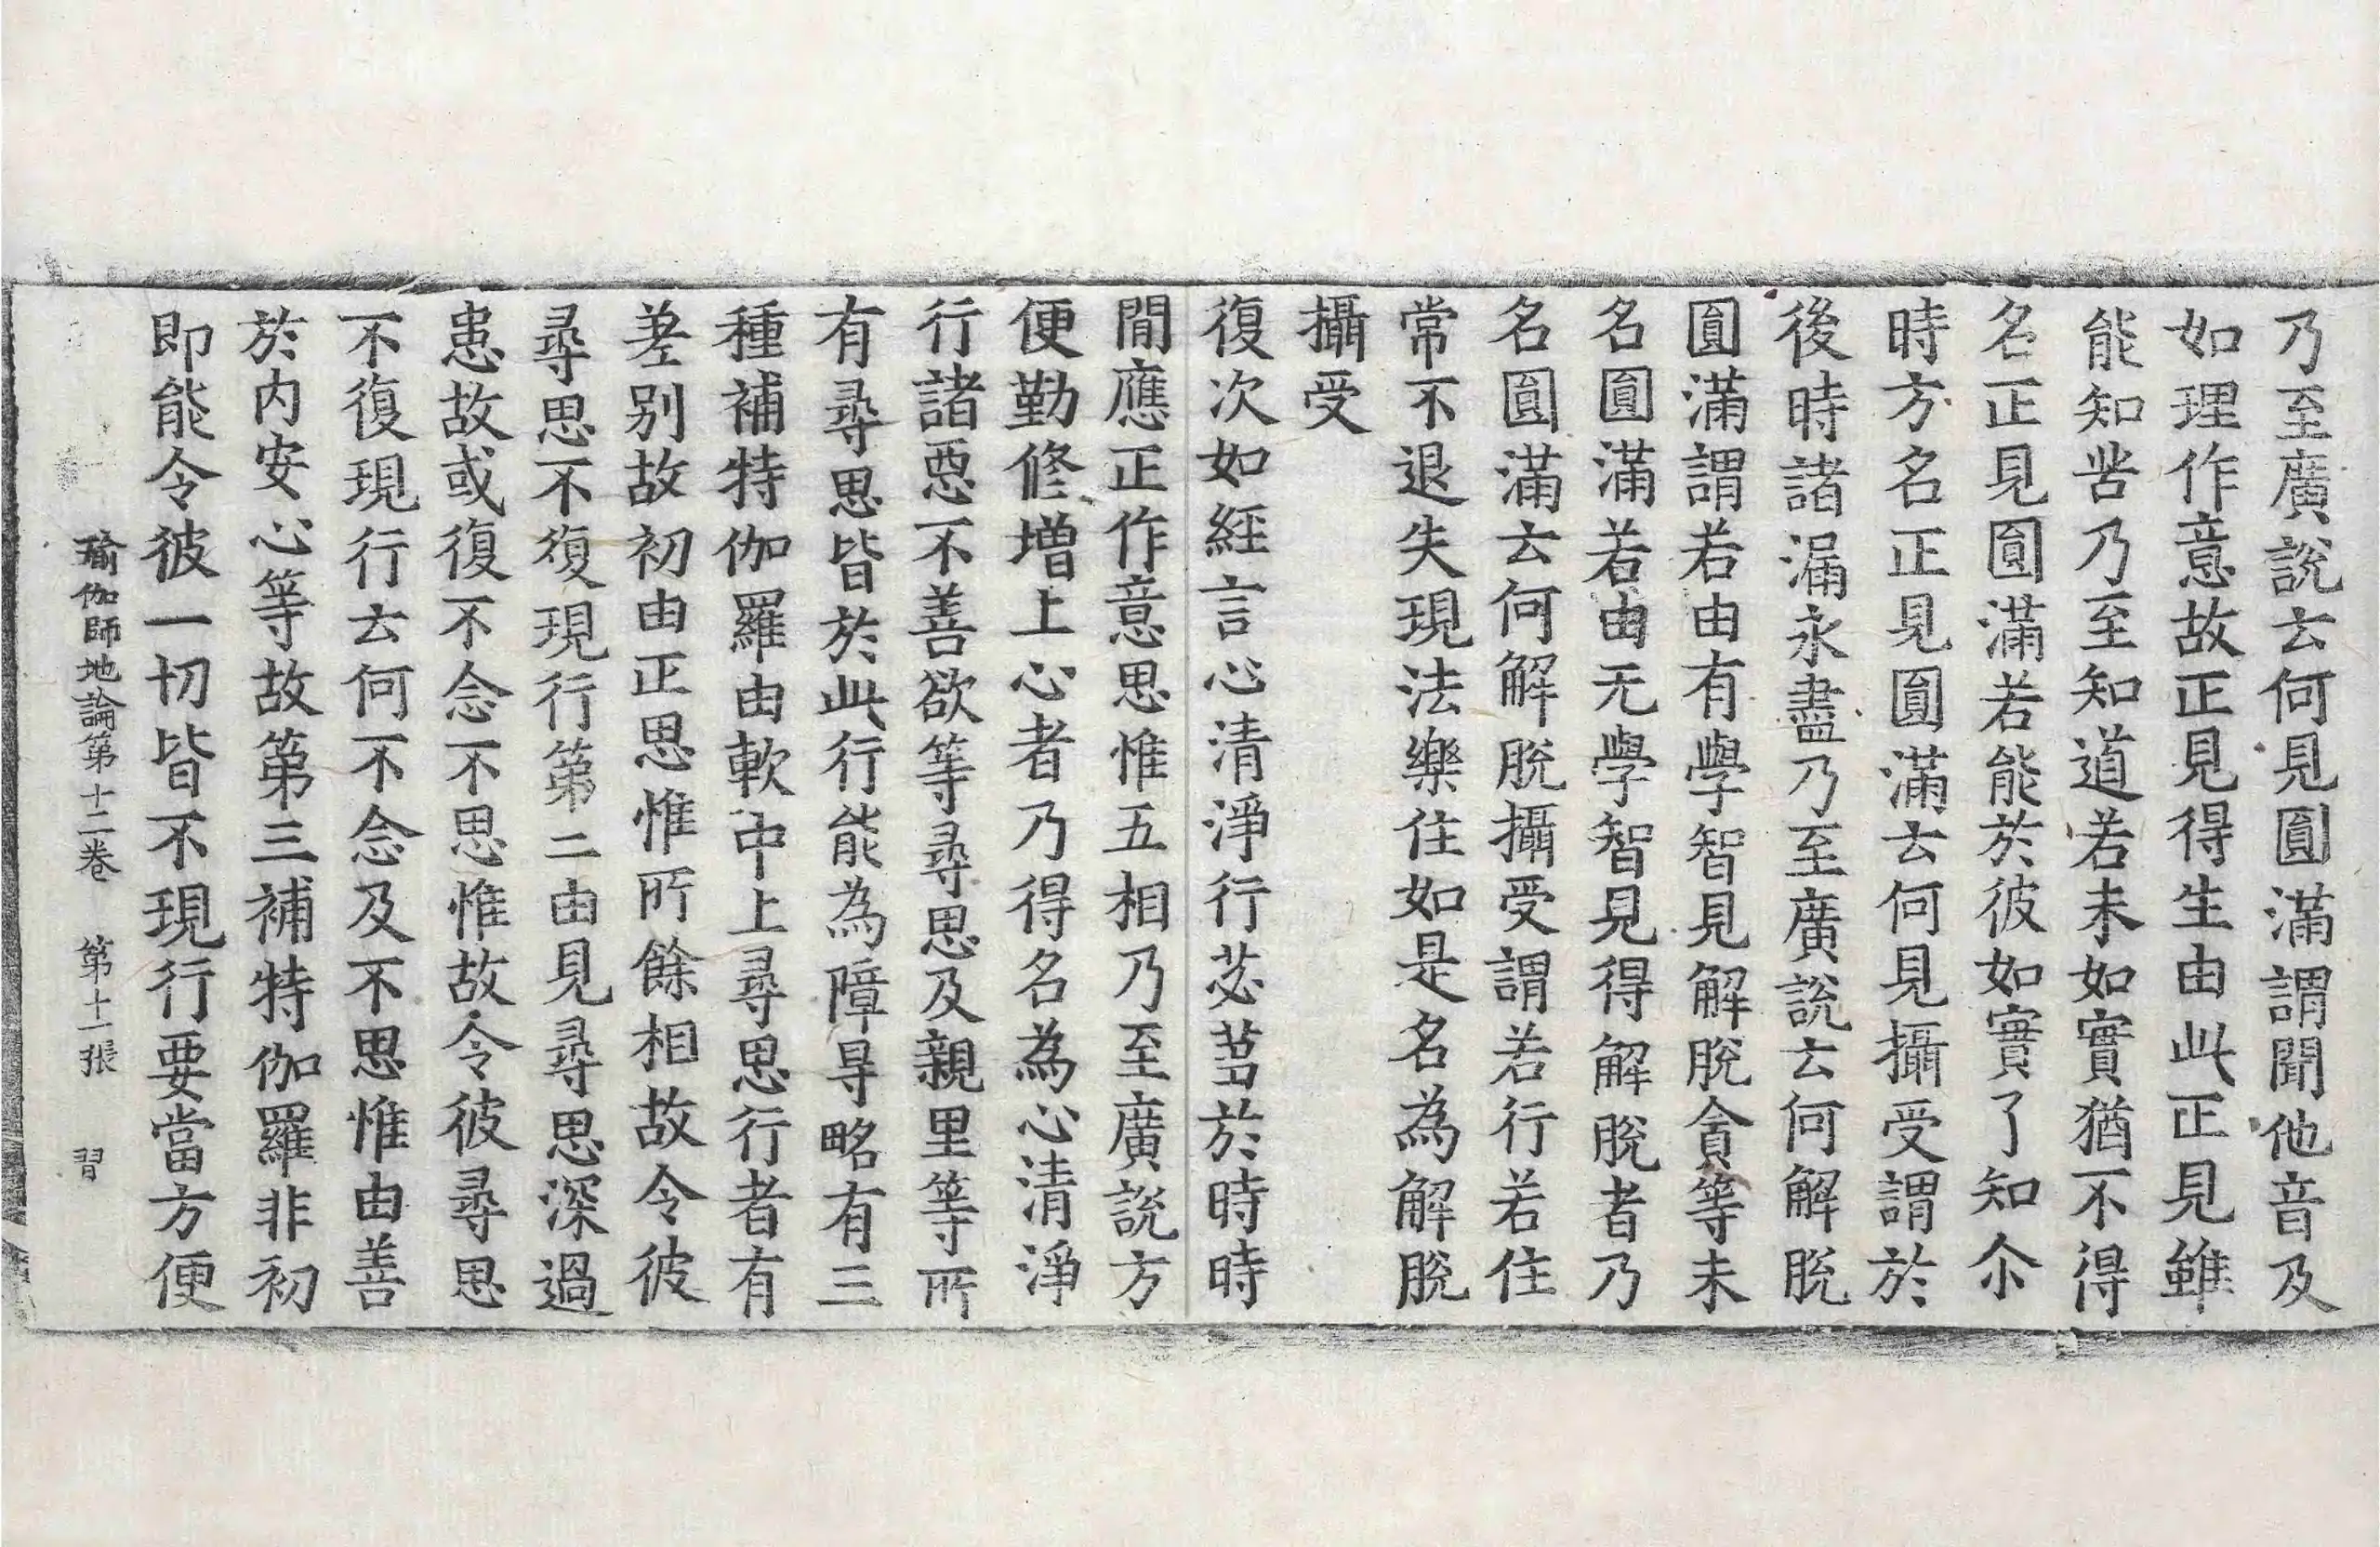 乃至廣說云何見圓滿謂聞他音及
如理作意故正見得生由此正見雖
能知苦乃至知道若未如實猶不得
名正見圓滿若能於彼如實了知尒
時方名正見圓滿云何見攝受謂於
後時諸漏永盡乃至廣說云何解脫
圓滿謂若由有學智見解脫貪等未
名圓滿若由无學智見得解脫者乃
名圓滿云何解脫攝受謂若行若住
常不退失現法樂住如是名為解脫
攝受
復次如經言心清淨行苾蒭於時時
間應正作意思惟五相乃至廣說方
便勤修增上心者乃得名為心清淨
行諸惡不善欲等尋思及親里等所
有尋思皆於此行能為障㝵略有三
種補特伽羅由軟中上尋思行者有
差別故初由正思惟所餘相故令彼
尋思不復現行第二由見尋思深過
患故或復不念不思惟故令彼尋思
不復現行云何不念及不思惟由善
於内安心等故第三補特伽羅非初
即能令彼一切皆不現行要當方便
瑜伽師地論第十二卷　第十一張　習